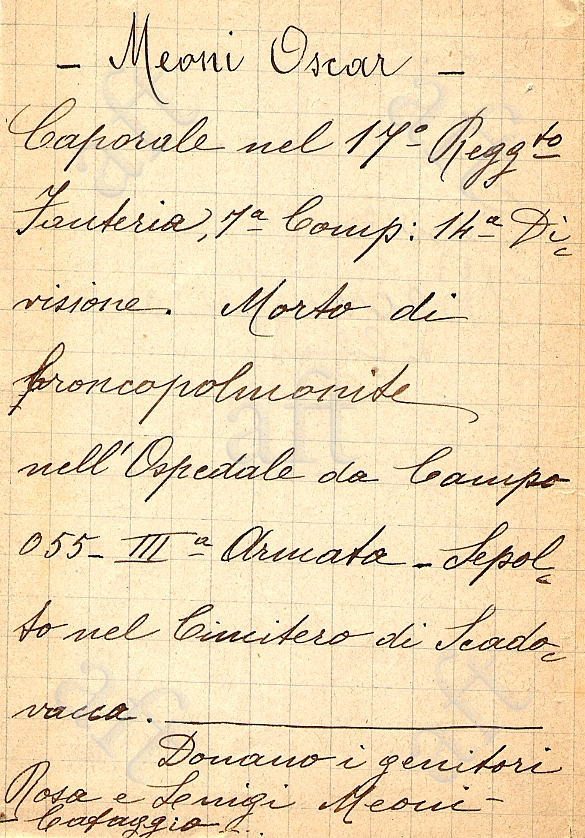 - Meoni Oscar -
Caporale nel 17º Reggto
Fanteria, 7ª Comp: 14ª Di-
visione. Morto di
broncopolmonite
nell'Ospedale da Campo
055- IIIª Armata - Sepol-
to nel Cimitero di Scado-
vacca.
Donano i genitori
Rosa e Luigi Meoni -
- Cafaggio -
aft